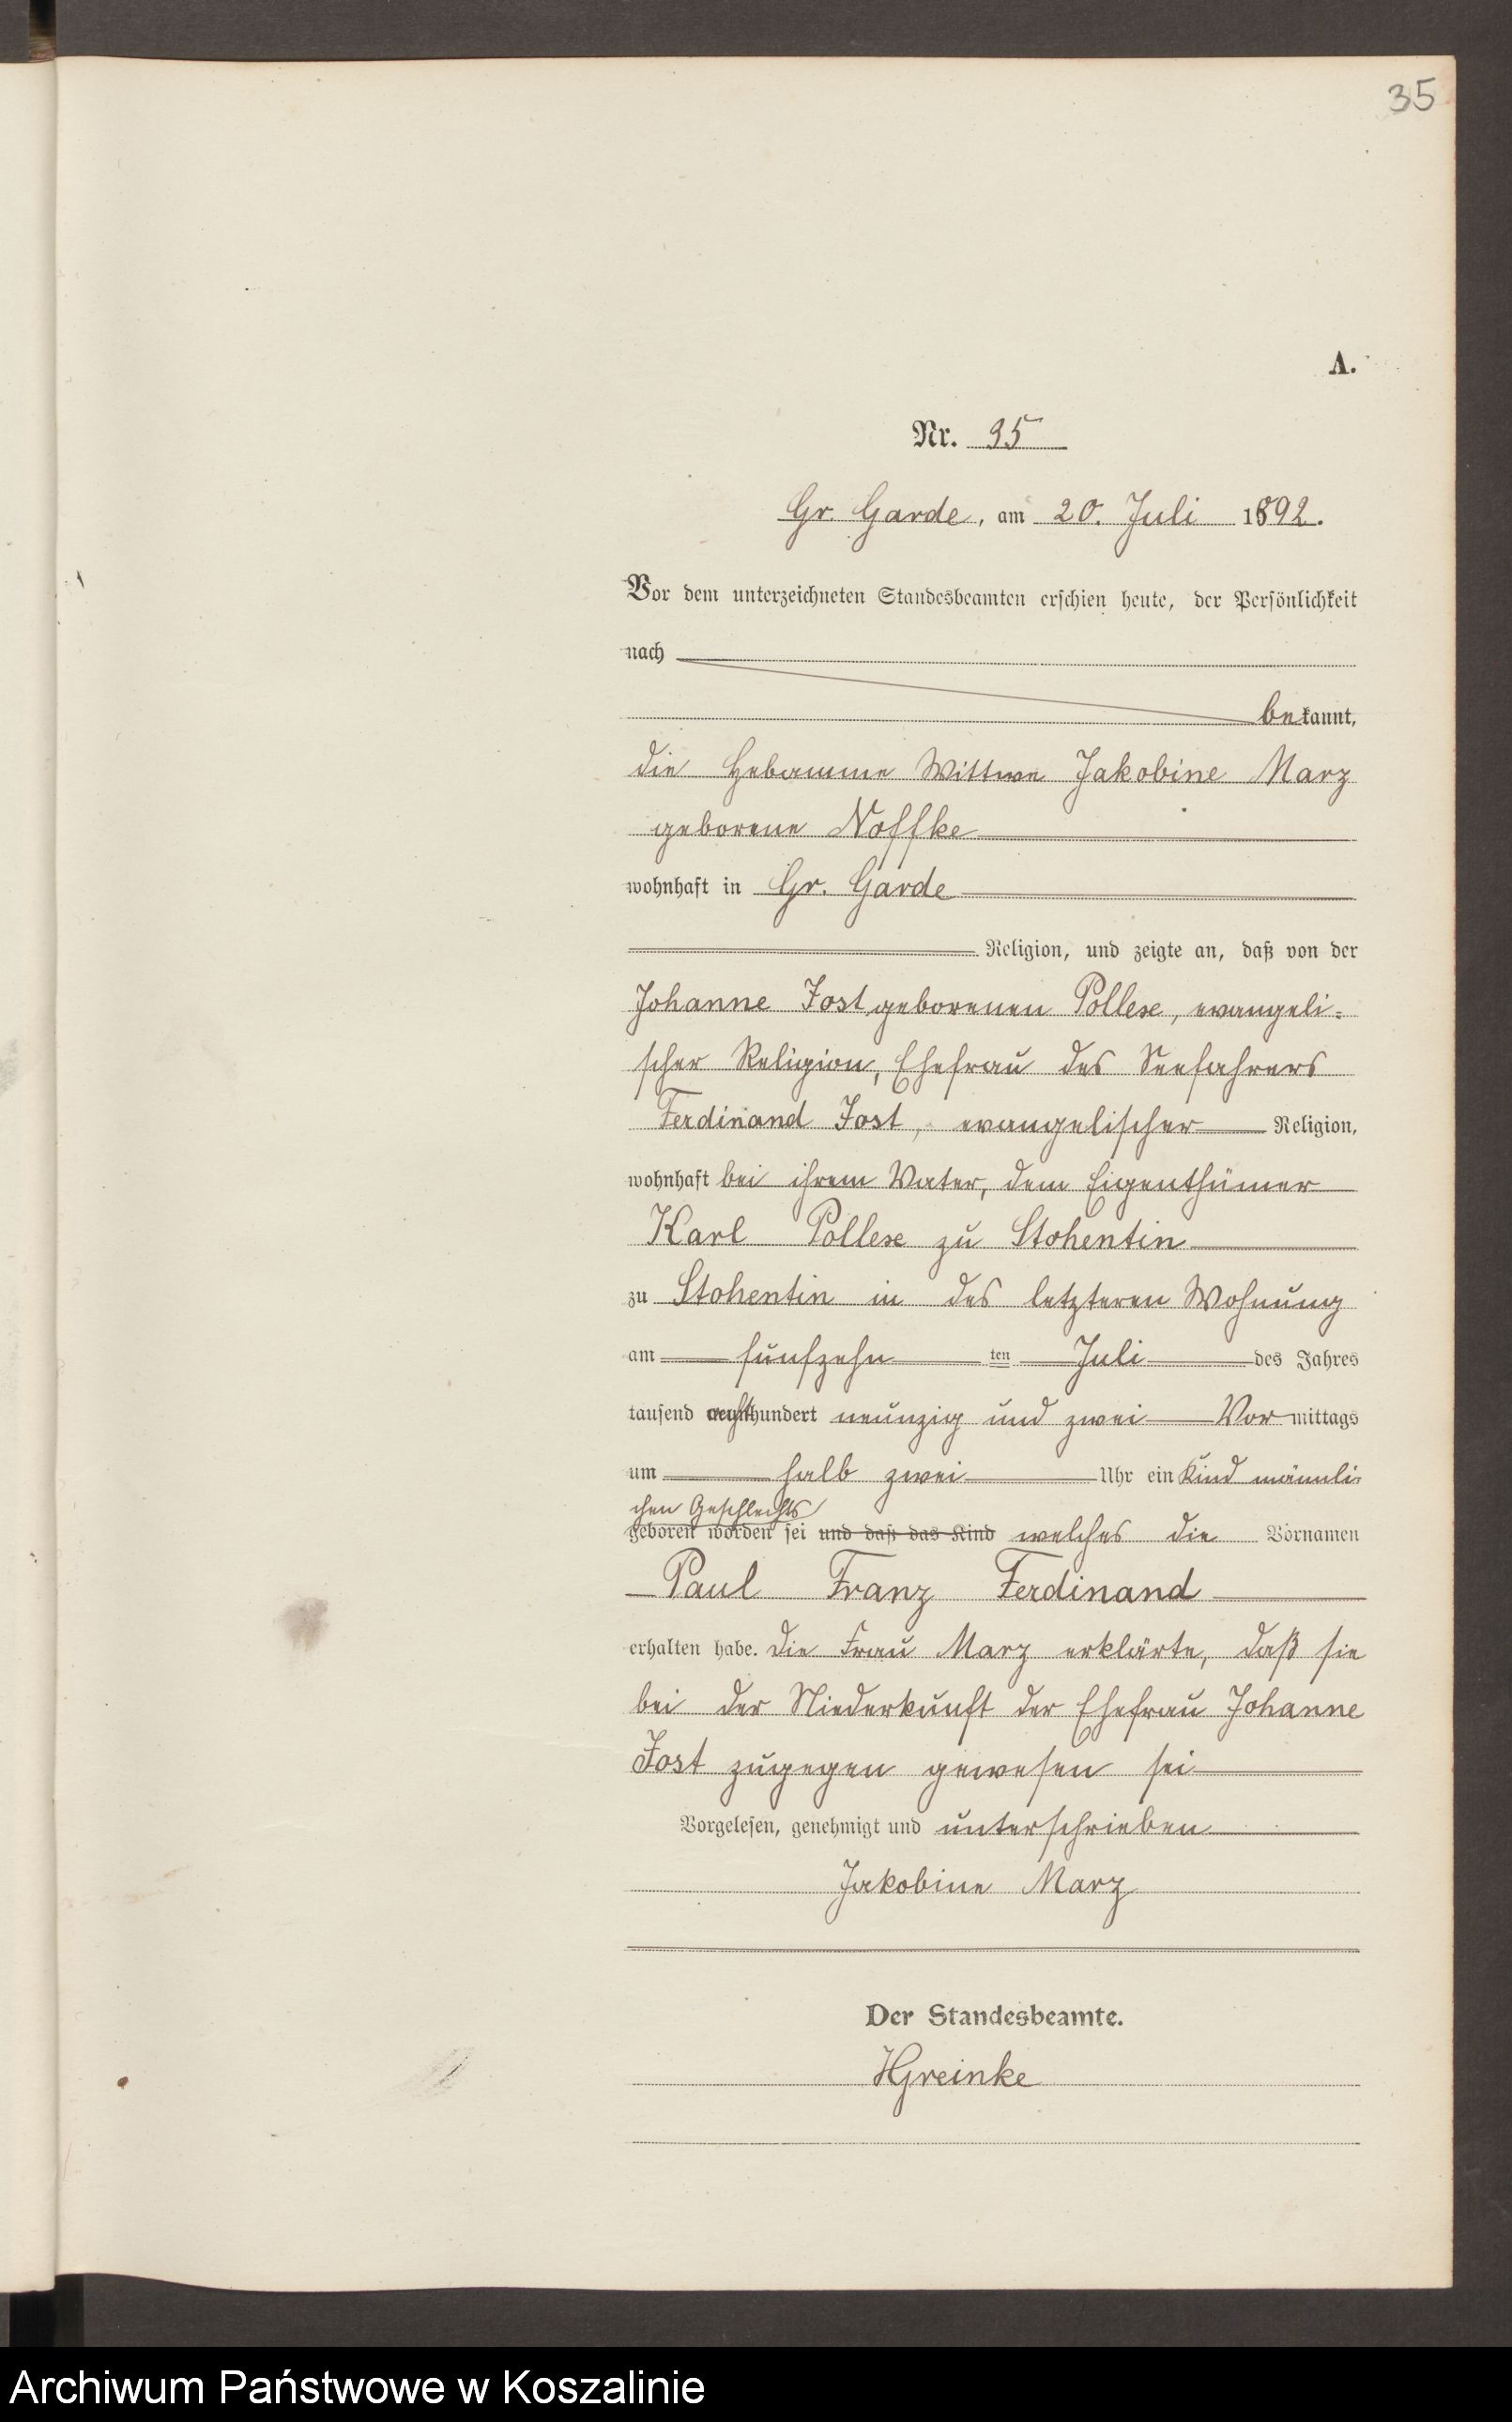 35
A.
Nr. 35
Gr. Garde, am 20. Juli 1892.
Vor dem unterzeichneten Standesbeamten erschien heute, der Persönlichkeit
nach
bekannt,
die Hebamme Wittwe Jakobine Marz
geborene Noffke
wohnhaft in Gr. Garde
Religion, und zeigte an, daß von der
Johanne Jost, geborenen Pollex, evangeli-
scher Religion, Ehefrau des Seefahrers
Ferdinand Jost, evangelischer Religion,
wohnhaft bei ihrem Vater, dem Eigenthümer
Karl Pollex zu Stohentin
zu Stohentin in des letzteren Wohnung
am fünfzehn ten Juli des Jahres
tausend achthundert neunzig und zwei Vor mittags
um halb zwei Uhr ein Kind männli-
chen Geschlechts
geboren worden sei und daß das Kind welches die Vornamen
Paul Franz Ferdinand
erhalten habe. Die Frau Marz erklärte, daß sie
bei der Niederkunft der Ehefrau Johanne
Jost zugegen gewesen sei
Vorgelesen, genehmigt und unterschrieben
Jakobine Marz
Der Standesbeamte.
HGreinke
Archiwum Państwowe w Koszalinie